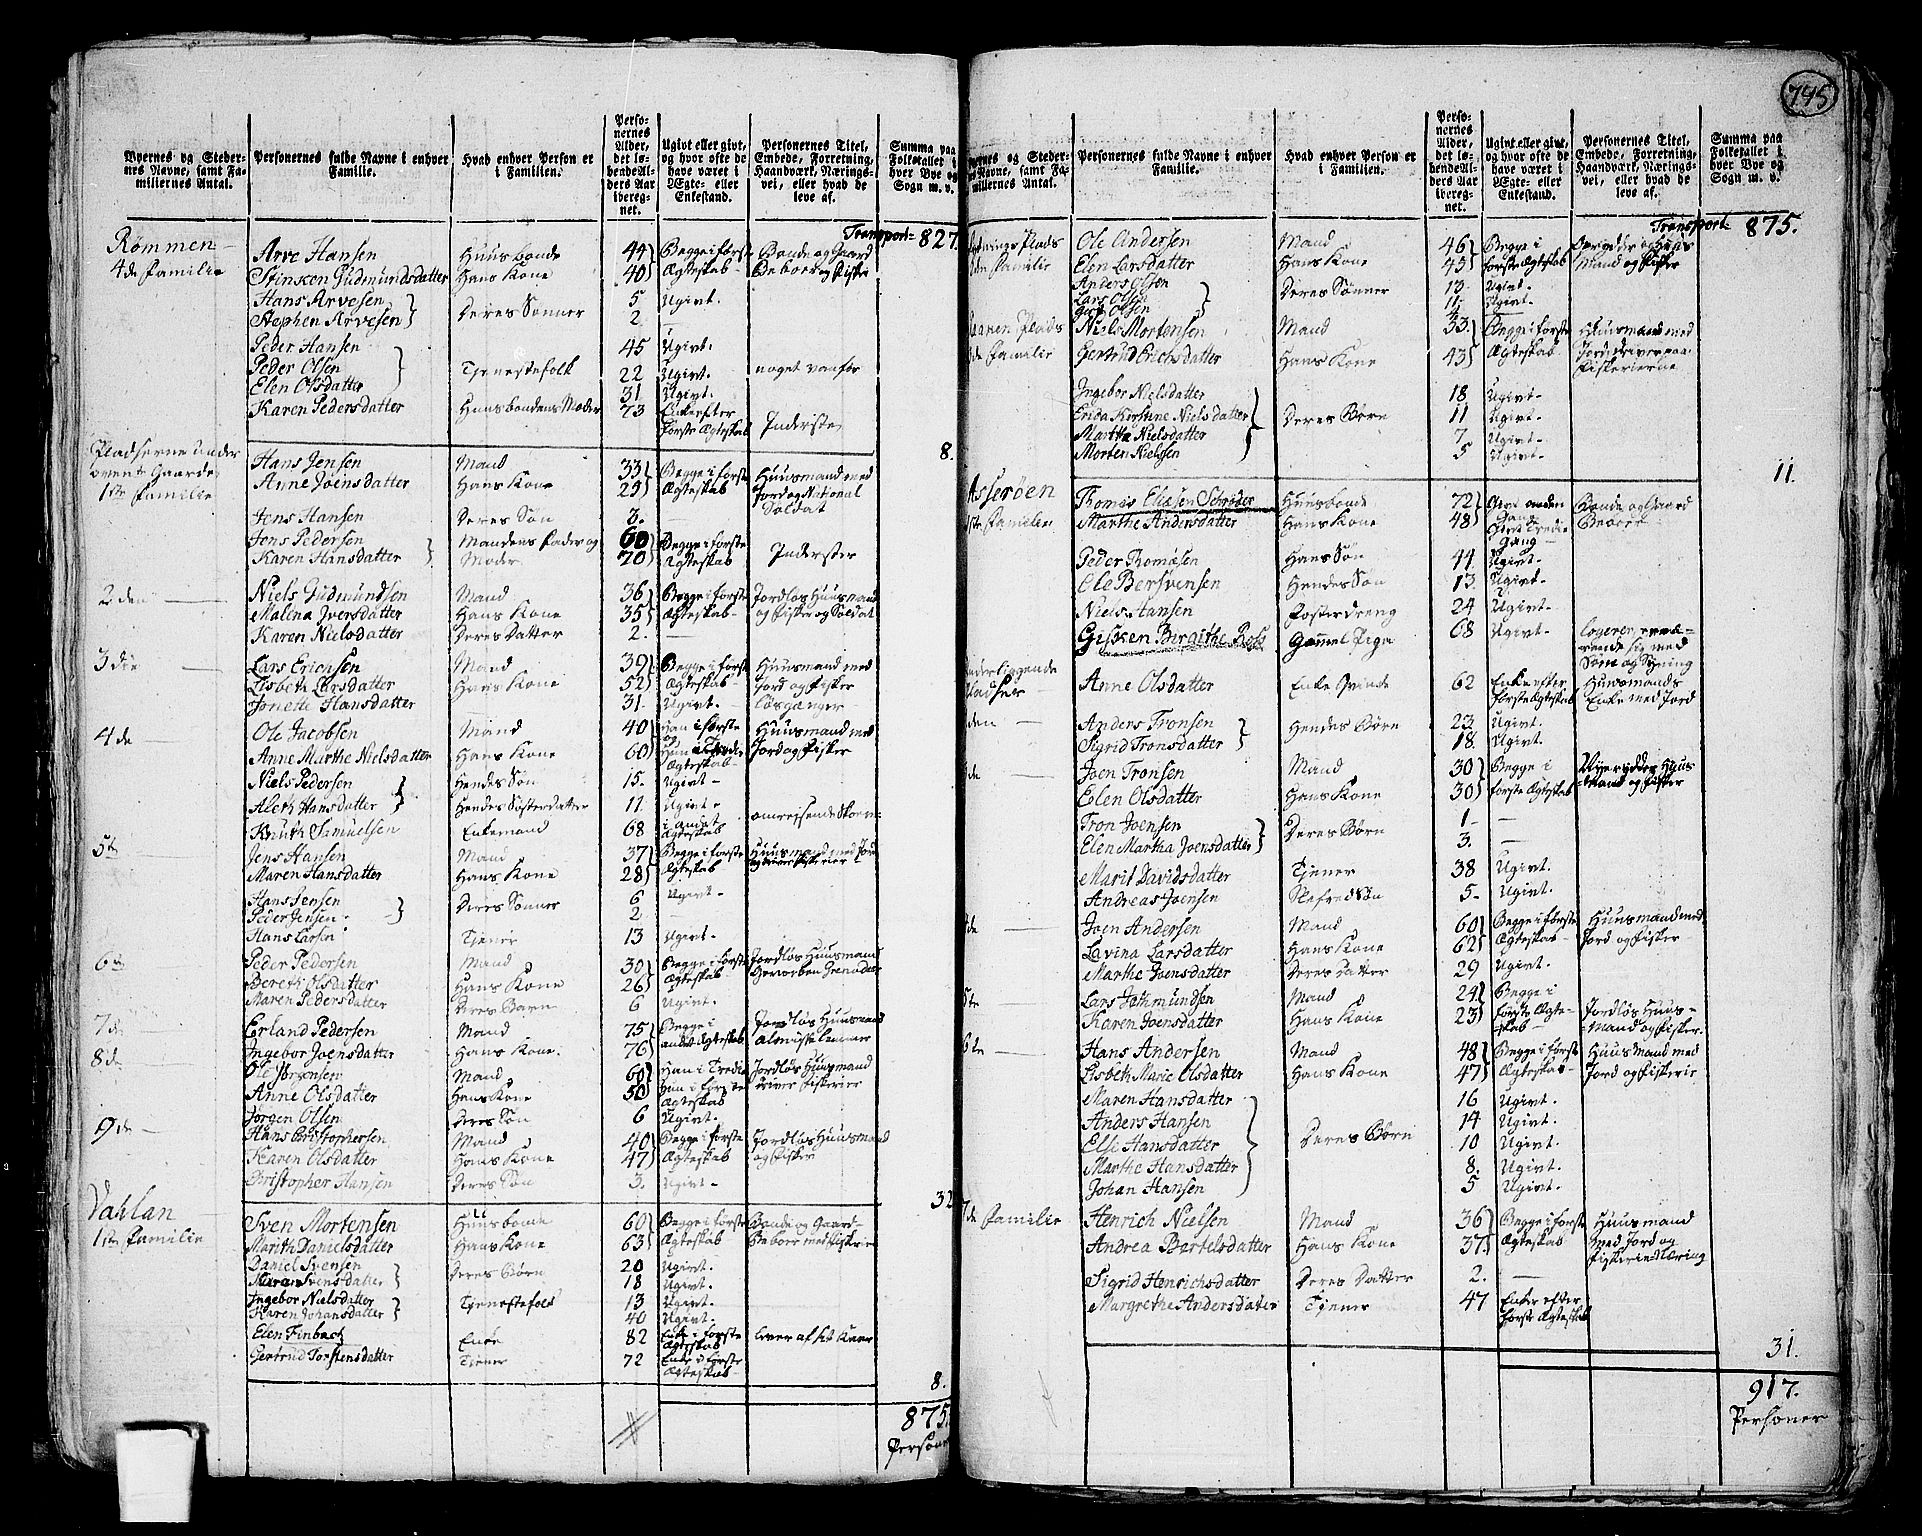 Byernes og Stedernes Navne, samt Familiernes Antal.
Personernes fulde Navne i enhver Familie.
Hvad enhver Person er i Familien.
Personernes Alder, det løbendeAlders Aar iberegnet.
Ugivt eller givt, og hvor ofte de have været i Ægte- eller Enkestand.
Personernes Titel, Embede, Forretning, Haandværk, Næringsvei, eller hvad de leve af.
Summa paa Folketallet i hver Bye og Sogn m. v.
Transport 827.
Rømmen
4de Familie
Arve Hansen Huusbonde 44 Begge i første Bonde og Gaard
Stinsken Gudmundsdatter Hans Kone 40 Ægteskab Beboer og Fisker
Hans Arvesen 5 Ugivt.
Stephen Arvesen Deres Sønner 2 —
Peder Hansen 45 Ugivt.
Peder Olsen Tjenestefolk 22 Ugivt. noget vanfør
Elen Olsdatter 31 Ugivt.
Karen Pedersdatter Huusbondens Moder 73 Enke efter
første Ægteskab Inderste
8.
Pladserne under
Gaarde
1ste Familie
Hans Jensen Mand 33 Begge i første Huusmand med
Anne Joensdatter Hans Kone 25 Ægteskab Jord og National
Soldat
Jens Hansen Deres Søn 3. —
Jens Pedersen Mandens Fader og 60 Begge i første
Karen Hansdatter Moder 70 Ægteskab Inderster
2den — Niels Gudmundsen Mand 36 Begge i første Jordløs Huusmand
Malena Iversdatter Hans Kone 35 Ægteskab og Fisker og Soldat
Karen Nielsdatter Deres Datter 2. —
3die — Lars Erichsen Mand 39 Begge i første Huusmand med
Lisbeth Larsdatter Hans Kone 52 Ægteskab Jord og Fisker
Jonette Hansdatter — 31. Ugivt. løsgænger
4de — Ole Jacobsen Mand 40 Han i første Huusmand med
Anne Marthe Nielsdatter Hans Kone 60 Hun i Tredie Jord og Fisker
Ægteskab
Niels Pedersen Hendes Søn 15. Ugivt
Aleth Hansdatter Hendes Søsterdatter 11 Ugivt
Knuth Samuelsen Enkemand 68 i andet
Ægteskab omrejsende
5te Jens Hansen Mand 37 Begge i første Huusmand med Jord
Maren Hansdatter Hans Kone 28 Ægteskab
Hans Jensen 6 Ugivt.
Peder Jensen Deres Sønner 2 —
Hans Larsen Tjener 13 Ugivt.
6te Peder Pedersen Mand 30 Begge i første Jordløs Huusmand
Bereth Olsdatter Hans Kone 26 Ægteskab Gevorben Grenadeer
Maren Pedersdatter Deres Barn 6 Ugivt.
7de Erland Pedersen Mand 75 Begge i Jordløs Huusmand
Ingebor Joensdatter Hans Kone. 76 andet Ægteskab Almisselemmer
8de Ole Jørgensen Mand 60 Han i Tredie Jordløs Huusmand
Anne Olsdatter Hans Kone 50 Hun i første driver Fiskerier
Ægteskab
Jørgen Olsen Deres Søn 6 Ugivt.
9de — Hans Christophersen Mand 40 Begge i første Jordløs Huusmand
Karen Olsdatter Hans Kone 47 Ægteskab og Fisker
Christopher Hansen Deres Søn 3. Ugivt
32
Vahlan
1ste Familie
Sven Mortensen Huusbonde 60 Begge i første Bonde og Gaard
Marith Danielsdatter Hans Kone 63 Ægteskab Beboer med Fiskerie
Daniel Svensen Deres Børn 20 Ugivt.
Maren Svensdatter 18 Ugivt.
Ingebor Nielsdatter Tjenestefolk 13 Ugivt.
Karen Johansdatter 40 Ugivt.
Elen Finbach Enke 82 Enke i første lever af sit Kaar
Ægteskab
Gertrud Torstensdatter Tjener 72 Enke i første
Ægteskab
8.
875.
Personer
745
Byernes og Stedernes Navne, samt Familiernes Antal.
Personernes fulde Navne i enhver Familie.
Hvad enhver Person er i Familien.
Personernes Alder, det løbendeAlders Aar iberegnet.
Ugivt eller givt, og hvor ofte de have været i Ægte- eller Enkestand.
Personernes Titel, Embede, Forretning, Haandværk, Næringsvei, eller hvad de leve af.
Summa paa Folketallet i hver Bye og Sogn m. v.
Transport 875.
Plads
Familie
Ole Andersen Mand 46 Begge i og Huus
Elen Larsdatter Hans Kone 45 første Ægteskab Mand og Fisker
Anders Olsen 13 Ugivt.
Lars Olsen Deres Sønner 11 Ugivt.
Gert Olsen
Plads
Familie
Niels Mortensen Mand 33. Begge i første Huusmand med
Gertrud Erichsdatter Hans Kone 43 Ægteskab Jord driver paa
Fiskerierne
Ingebor Nielsdatter 18 Ugivt.
Erica Kirstine Nielsdatter Deres Børn 11 Ugivt.
Martha Nielsdatter 7 Ugivt.
Morten Nielsen 5 Ugivt.
11.
Asserøen
1ste Familie
Thomas Eliæsen Schrøder Huusbonde 72 Givt anden Bonde og Gaard
Marthe Andersdatter Hans Kone 48 Gang Beboer
Givt Tredie
Gang
Peder Thomæsen Hans Søn 44 Ugivt.
Ole Bersvensen Hendes Søn 13. Ugivt.
Niels Hansen Fosterdreng 24 Ugivt.
Gisken Birgithe Ross Gammel Pige 68 Ugivt. logerer
sig med
Søm og Syning
Underliggende
Pladser
Anne Olsdatter Enke Qvinde 62 Enke efter Huusmands
første Ægteskab Enke med Jord
Anders Tronsen Hendes Børn 23. Ugivt
Sigrid Tronsdatter 18. Ugivt.
Joen Tronsen Mand 30 Begge i Nyerydder Huus
Elen Olsdatter Hans Kone 30 første Ægteskab Mand og Fisker
Tron Joensen Deres Børn 1 —
Elen Martha Joensdatter 3. —
Marit Davidsdatter Tjener 38 Ugivt.
Andreas Joensen Stefredsøn 5 Ugivt.
Joen Andersen Mand 60 Begge i første Huusmand med
Lavina Larsdatter Hans Kone 62 Ægteskab Jord og Fisker
Marthe Joensdatter Deres Datter 29 Ugivt.
5te — Lars Jetmundsen Mand 24 Begge i Jordløs Huus-
Karen Joensdatter Hans Kone 23 første Ægte- Mand og Fisker.
skab
6te — Hans Andersen Mand 48 Begge i første Huusmand med
Lisbeth Marie Olsdatter Hans Kone 47 Ægteskab Jord og Fiskerie
Maren Hansdatter 16 Ugivt.
Anders Hansen 14 Ugivt.
Elsi Hansdatter Deres Børn 10 Ugivt.
Marthe Hansdatter 8. Ugivt.
Johan Hansen 5 Ugivt.
7de Familie Henrich Nielsen Mand 36 Begge i første Huusmand
Andrea Bertelsdatter Hans Kone 37. Ægteskab Med Jord og
Fiskerie Næring
Sigrid Henrichsdatter Deres Datter 2. —
Margrethe Andersdatter Tjener 47 Enke efter
første Ægteskab
31.
917.
Personer